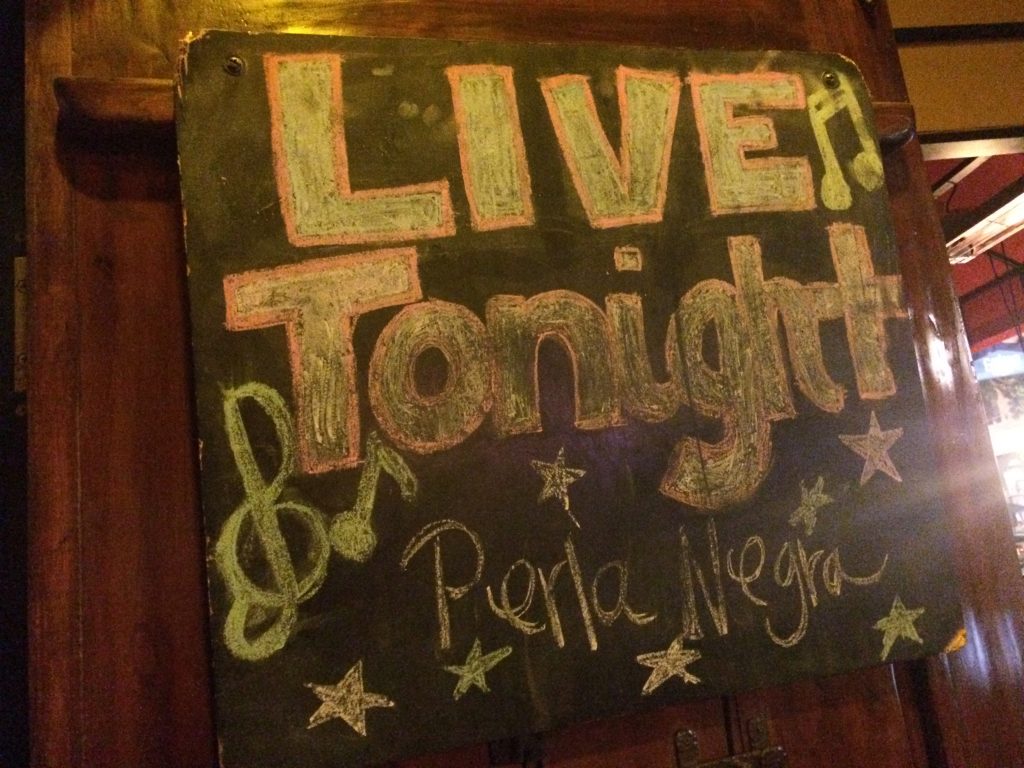 LIVE
Tonight
Perla Negra